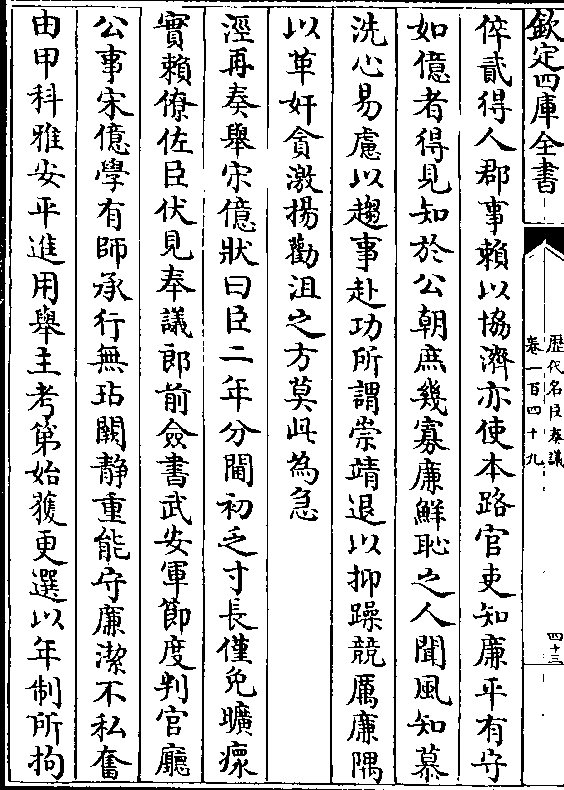 欽定四庫全書
歷代名臣奏議
卷一百四十九
四十三
倅貳得人郡事賴以協濟亦使本路官吏知廉平有守
如億者得見知於公朝庶幾寡廉鮮恥之人聞風知慕
洗心易慮以趨事赴功所謂崇靖退以抑躁競厲廉隅
以革奸貪激揚勸沮之方莫此為急
涇再奏舉宋億狀曰臣二年分閫初乏寸長僅免曠瘝
實賴僚佐臣伏見奉議郎前僉書武安軍節度判官廳
公事宋億學有師承行無玷闕靜重能守廉潔不私奮
由甲科雅安平進用舉主考第始獲更選以年制所拘